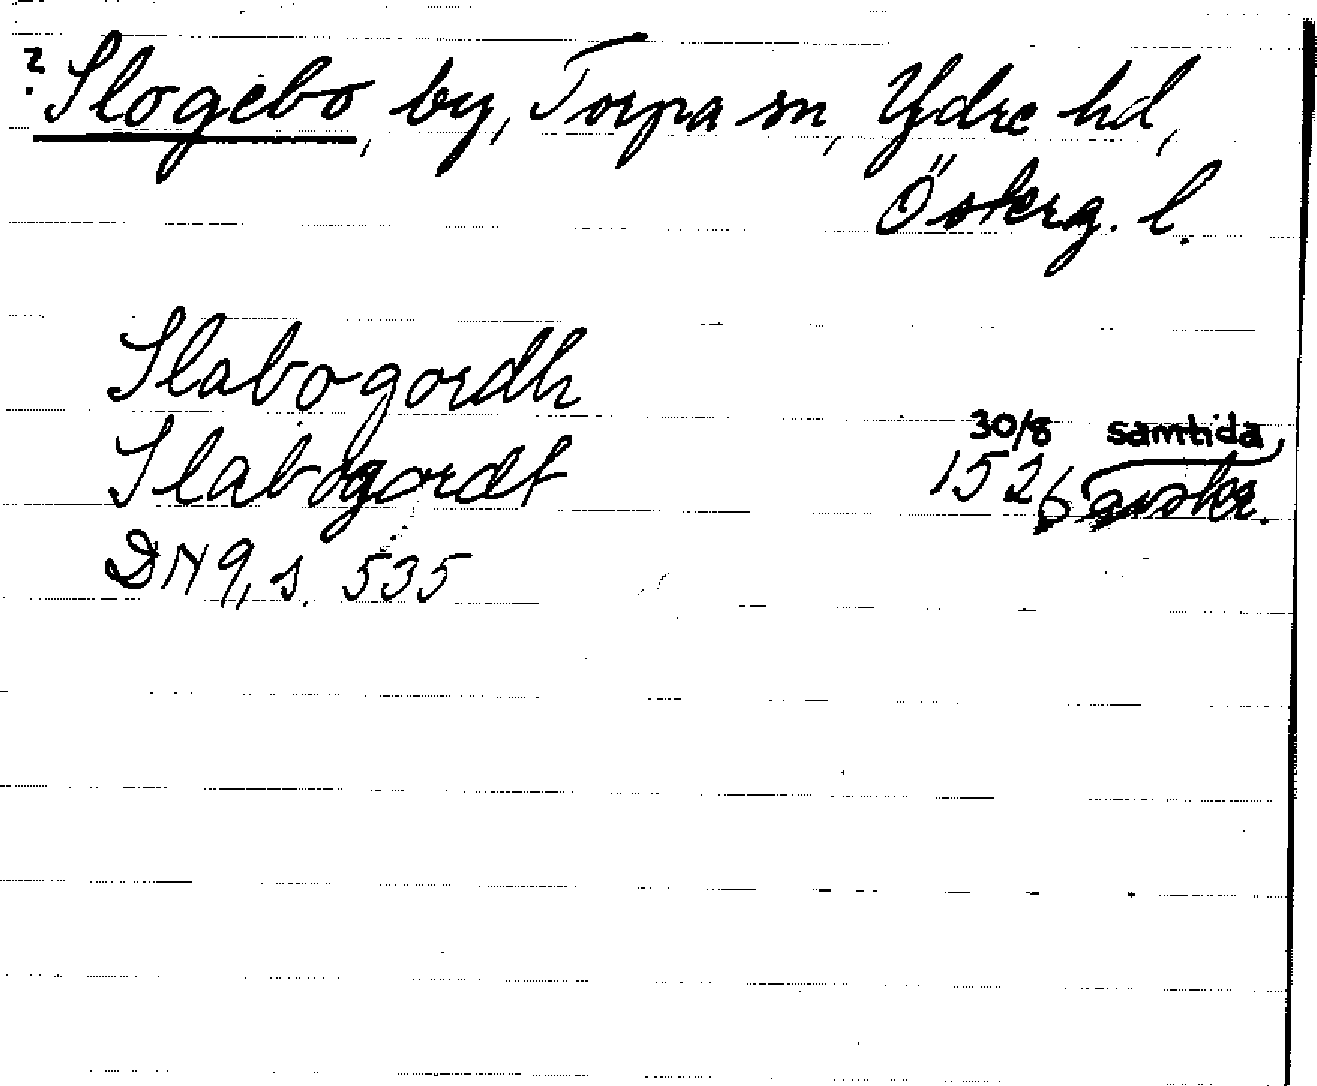 ? Slogebo, by, Torpa sn, Ydre hd,
Österg. l.
Slabogordh
30/8 samtida
Slabogordt 1526 avskr.
DN 9, s. 535